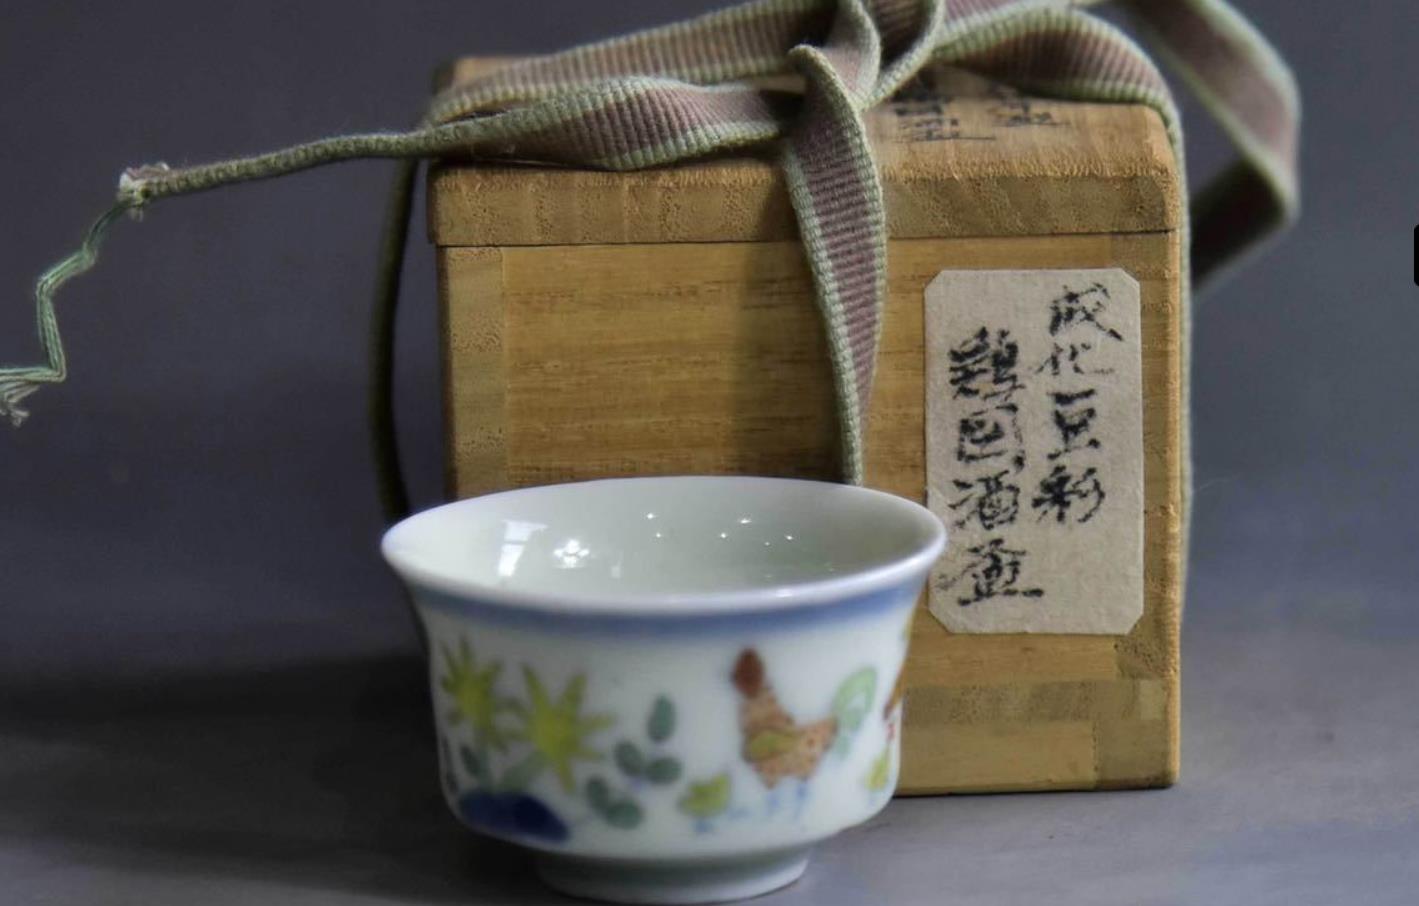 成化豆彩
鶏図酒盃